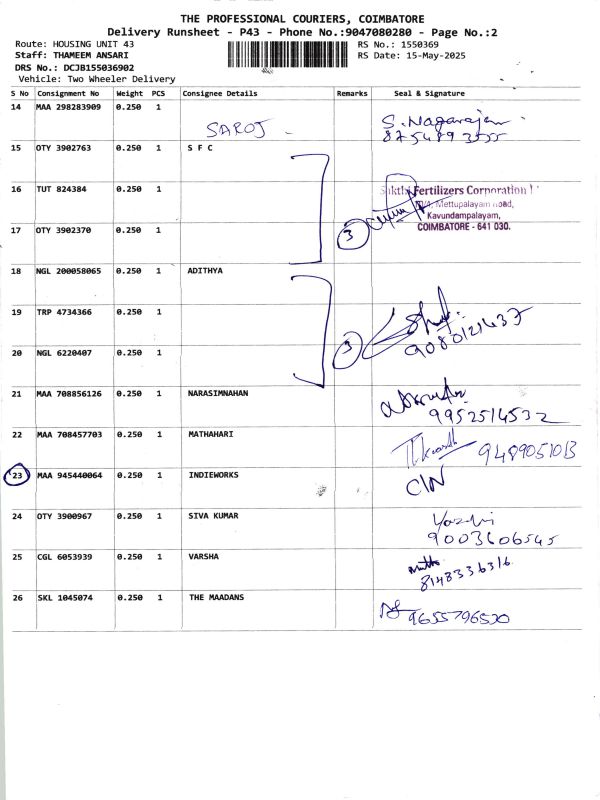 THE PROFESSIONAL COURIERS, COIMBATORE
Delivery Runsheet - P43 - Phone No.:9047080280 - Page No.:2
Route: HOUSING UNIT 43
RS No.: 1550369
Staff: THAMEEM ANSARI
RS Date: 15-May-2025
DRS No.: DCJB155036902
Vehicle: Two Wheeler Delivery
S No Consignment No Weight PCS Consignee Details Remarks Seal & Signature
14 MAA 298283909 0.250 1
SAROJ
S. Nagarajan
8754893555
15 OTY 3902763 0.250 1 S F C
16 TUT 824384 0.250 1
Sakthi Fertilizers Corporation
Mettupalayam Road,
Kavundampalayam,
COIMBATORE - 641 030.
17 OTY 3902370 0.250 1
3
18 NGL 200058065 0.250 1 ADITHYA
19 TRP 4734366 0.250 1
9080121437
20 NGL 6220407 0.250 1
3
21 MAA 708856126 0.250 1 NARASIMNAHAN
9952514532
22 MAA 708457703 0.250 1 MATHAHARI
9489051013
23 MAA 945440064 0.250 1 INDIEWORKS
C/N
24 OTY 3900967 0.250 1 SIVA KUMAR
9003606545
25 CGL 6053939 0.250 1 VARSHA
8148336316
26 SKL 1045074 0.250 1 THE MAADANS
9655796530